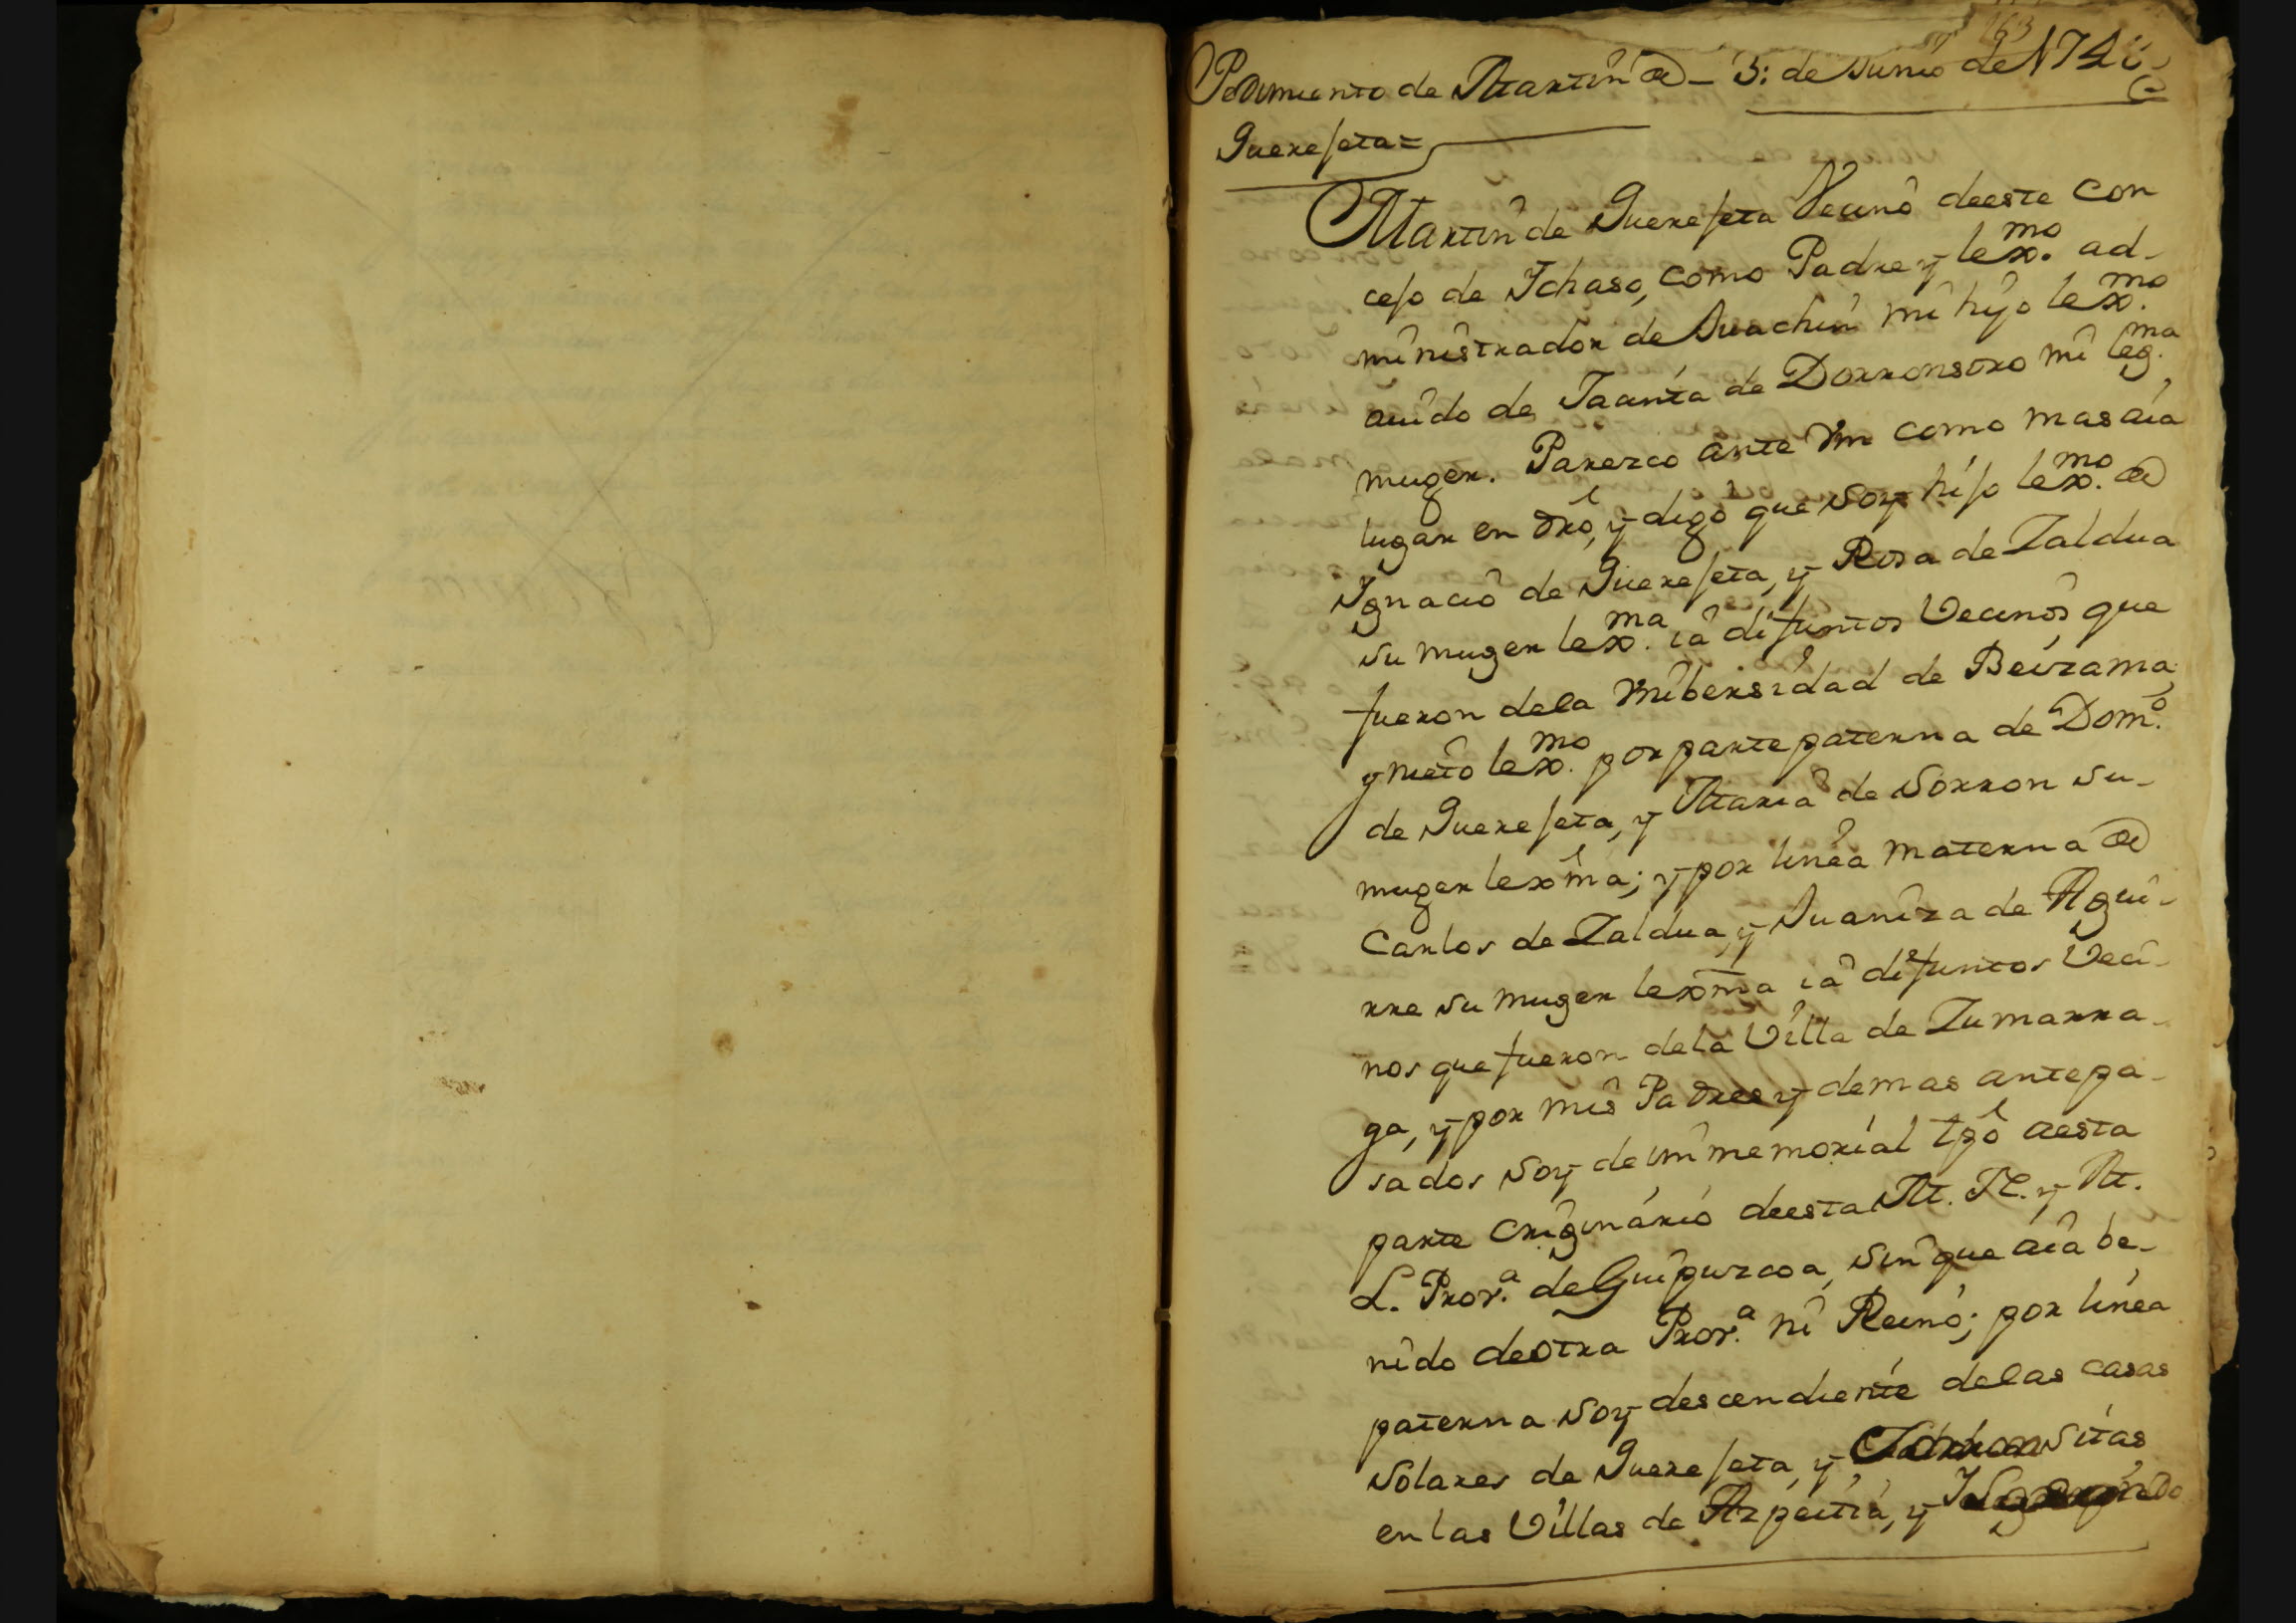 163
Pedimiento de Martin de – 3: de Junio de 174
Guereseta =
Martin de Guereseta Vecino deeste con
cejo de Ychaso, como Padre y lexmo. ad-
ministrador de Juachin mi hijo lexmo.
auido de Jacinta de Dorronsoro mi legma.
muger. Parezco ante Vm como mas aia
lugar en dro, y digo que soy hijo lexmo. de
Ygnacio de Guereseta, y Rosa de Zaldua
su muger lexma. ia difuntos Vecinos que
fueron dela Unibersidad de Beizama,
y nieto lexmo. por parte paterna de Domo.
de Guereseta, y Maria de Sorron su-
muger lexma; y por linea materna de
Carlos de Zaldua, y Juaniza de Agui-
rre su muger lexma ia difuntos Veci-
nos que fueron dela Villa de Zumarra-
ga, y por mis Padres y demas antepa-
sados soy de immemorial tpo aesta
parte Originario deesta M. N. y M.
L. Prova. de Guipuzcoa, sin que aia be-
nido deotra Prova. ni Reino; por linea
paterna soy descendiente delas casas
solares de Guereseta, y sitas
en las Villas de Azpeitia, y